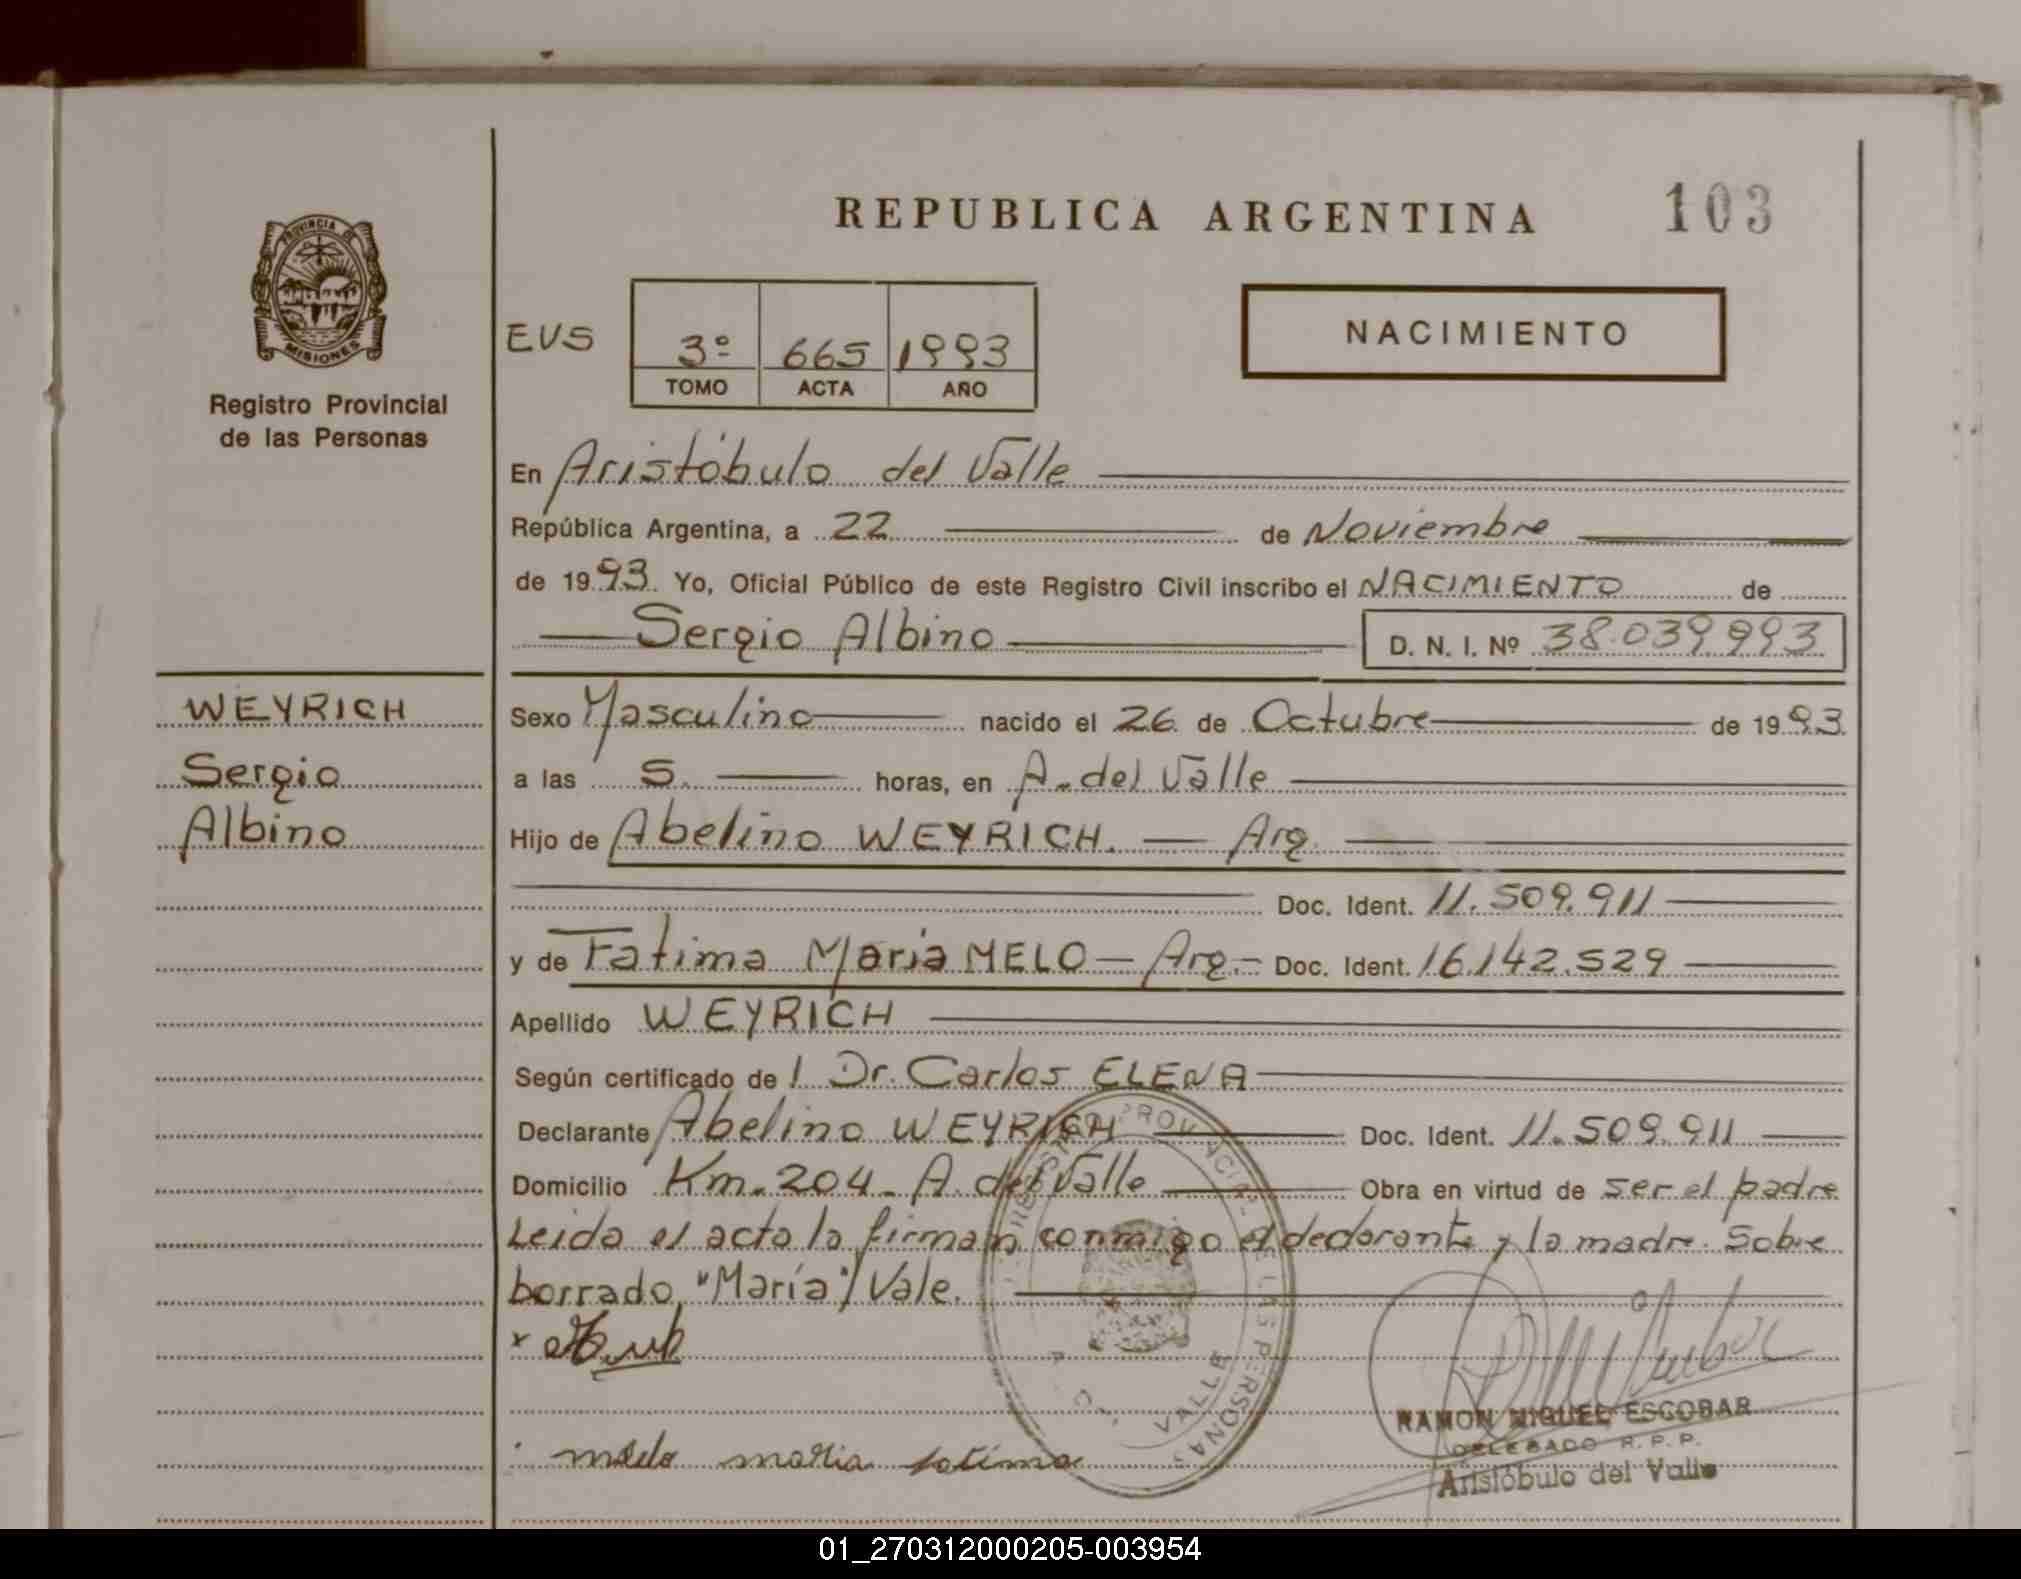 REPUBLICA ARGENTINA 103
PROVINCIA DE
MISIONES
Registro Provincial
de las Personas
EVS
3º 665 1993
TOMO ACTA AÑO
NACIMIENTO
En Aristóbulo del Valle
República Argentina, a 22 de Noviembre
de 1993. Yo, Oficial Público de este Registro Civil inscribo el NACIMIENTO de
Sergio Albino D. N. I. Nº 38.039.993
WEYRICH
Sergio
Albino
Sexo Masculino nacido el 26 de Octubre de 1993.
a las 5. horas, en A. del Valle
Hijo de Abelino WEYRICH. — Arg.
Doc. Ident. 11.509.911
y de Fatima Maria MELO — Arg.- Doc. Ident. 16.142.529
Apellido WEYRICH
Según certificado de l Dr. Carlos ELENA
Declarante Abelino WEYRICH Doc. Ident. 11.509.911
Domicilio Km. 204 - A. del Valle Obra en virtud de ser el padre
Leida el acta la firman conmigo el declarante y la madre. Sobre
borrado "María"/ Vale.
REGISTRO PROVINCIAL DE LAS PERSONAS
VALLE
melo maria fatima
RAMON MIGUEL ESCOBAR
DELEGADO R. P. P.
Aristóbulo del Valle
01_270312000205-003954